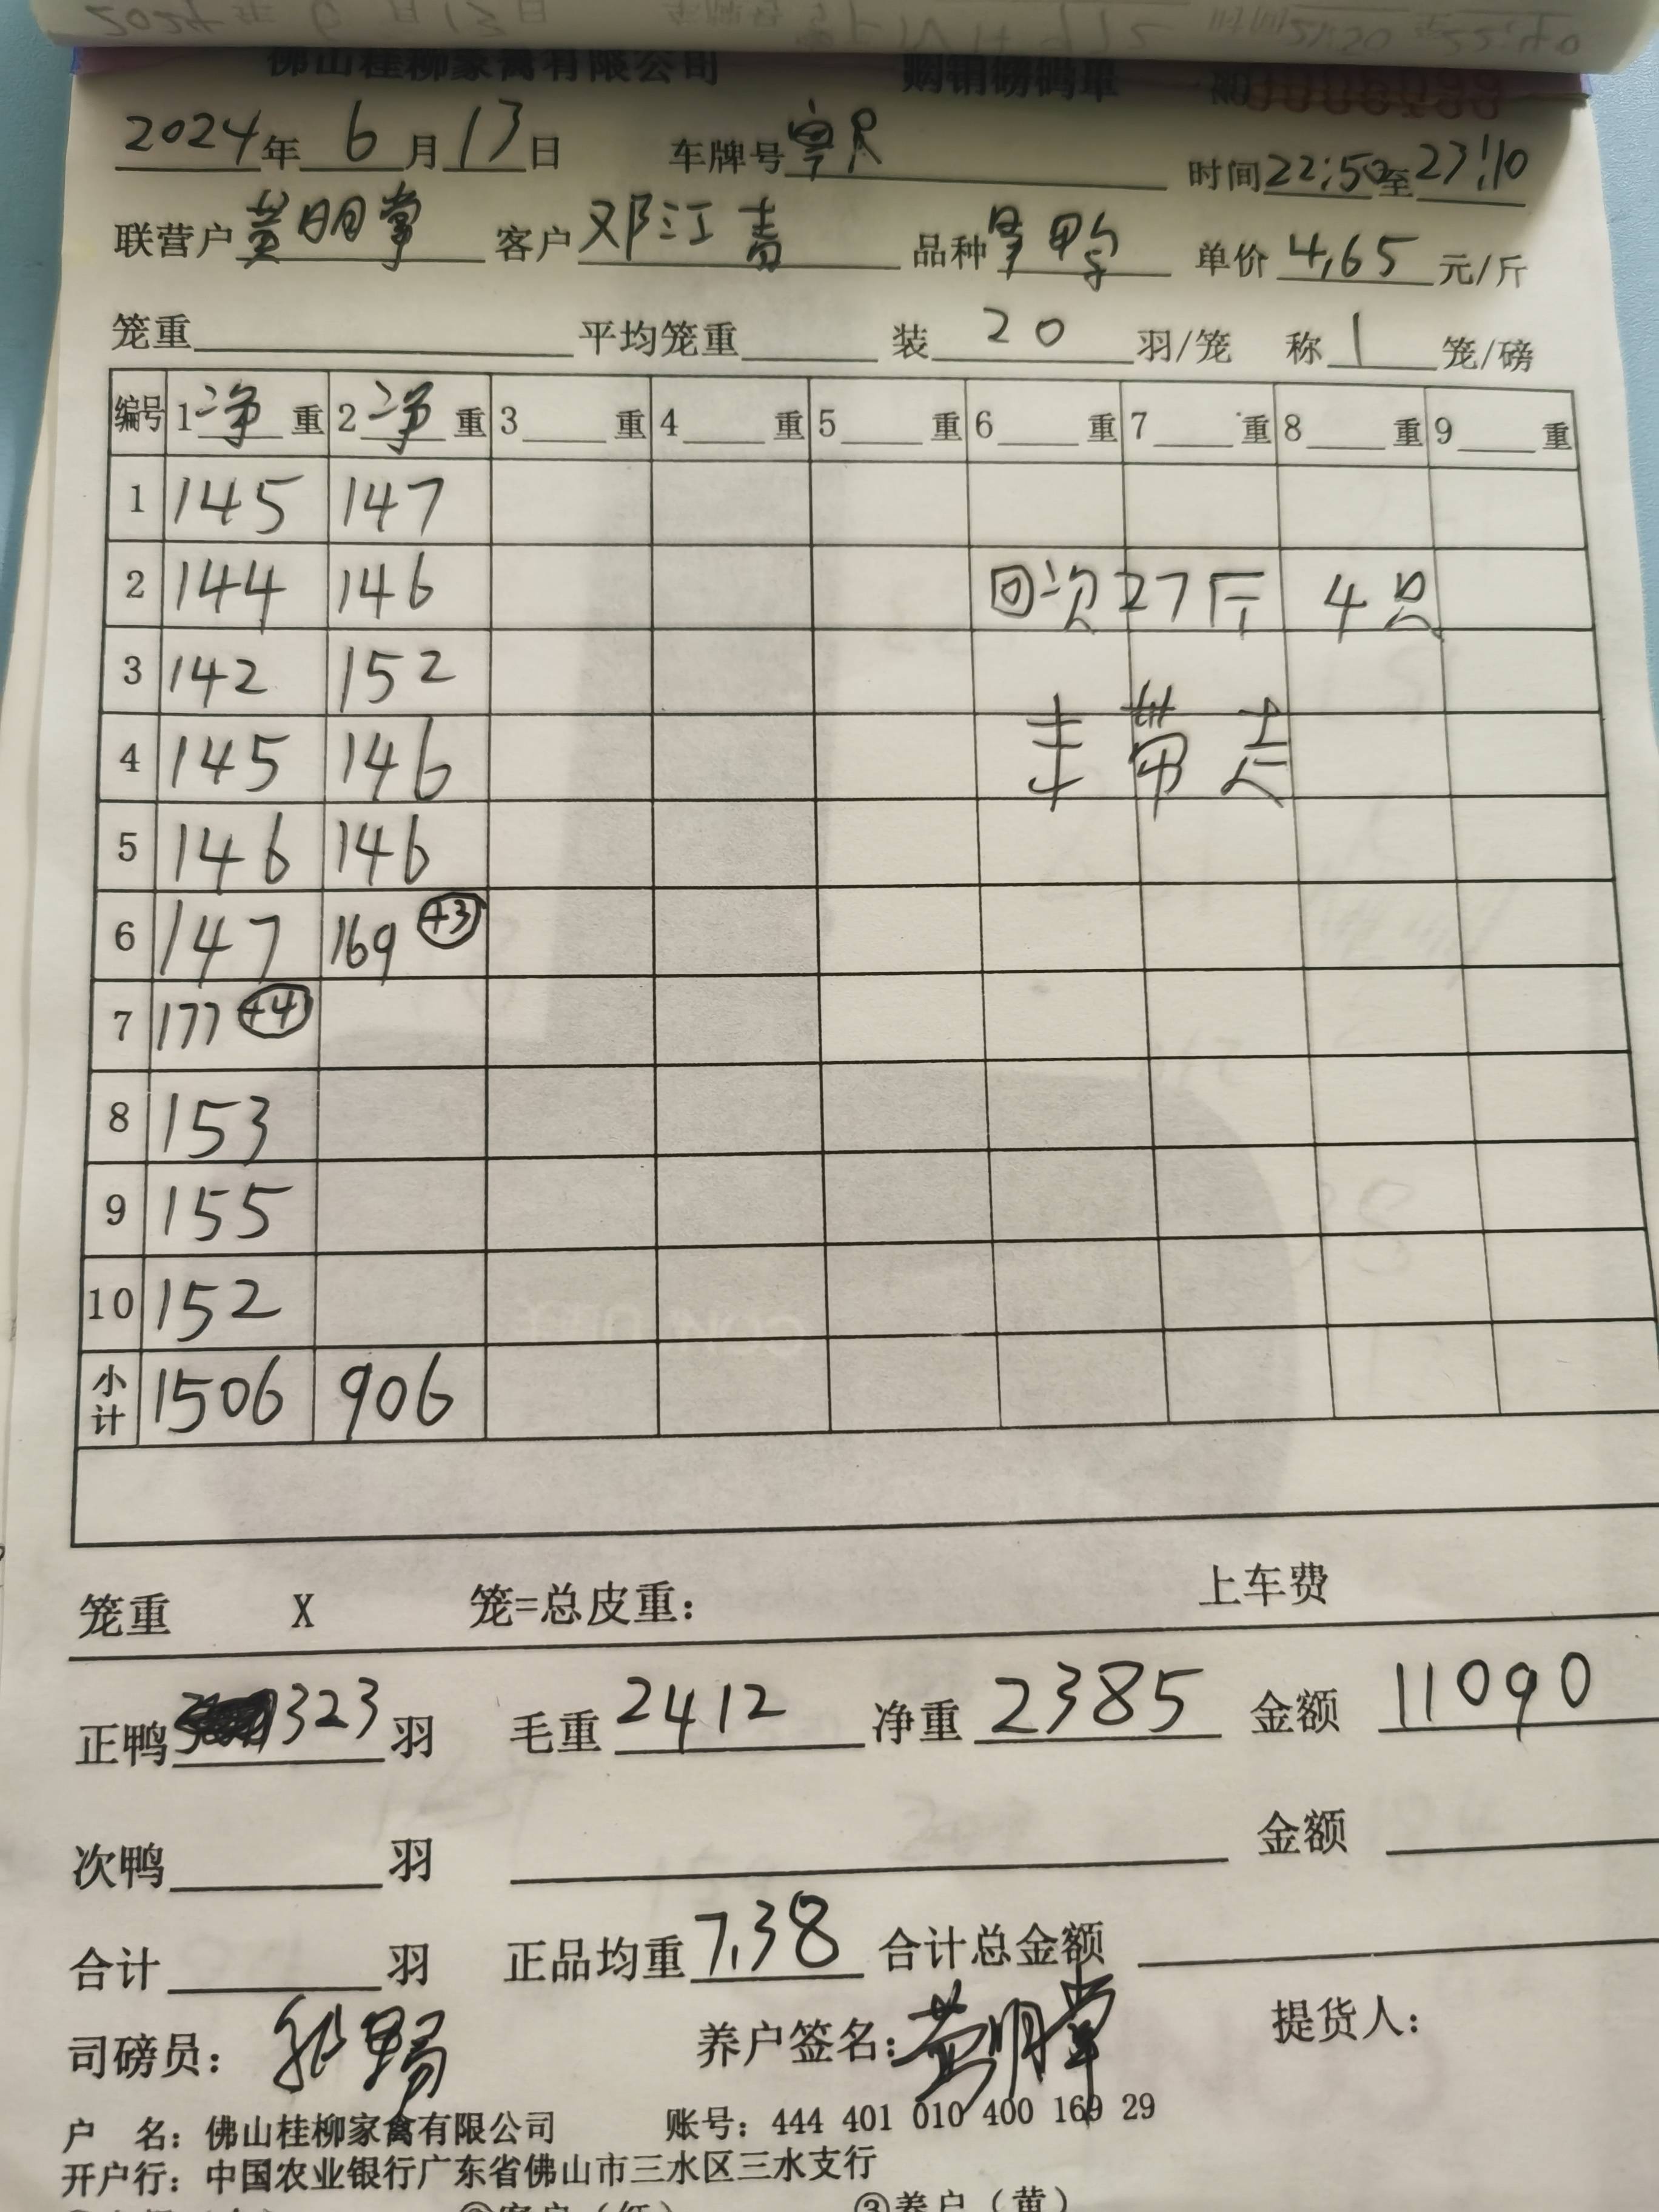 佛山桂柳家禽有限公司 购销磅码单 №0006599
2024年6月13日 车牌号 粤R 时间22:50至23:10
联营户 黄明掌 客户 邓江青 品种 鸭 单价 4.65 元/斤
笼重 平均笼重 装 20 羽/笼 称 1 笼/磅
编号 1 净 重 2 净 重 3 重 4 重 5 重 6 重 7 重 8 重 9 重
1 145 147
2 144 146 回次27斤 4只
3 142 152
4 145 146 未带走
5 146 146
6 147 169 +3
7 177 +4
8 153
9 155
10 152
小计 1506 906
笼重 X 笼=总皮重: 上车费
正鸭 323 羽 毛重 2412 净重 2385 金额 11090
次鸭 羽 金额
合计 羽 正品均重 7.38 合计总金额
司磅员: 养户签名: 黄明掌 提货人:
户 名: 佛山桂柳家禽有限公司 账号: 444 401 010 400 169 29
开户行: 中国农业银行广东省佛山市三水区三水支行
②客户(红) ③养户(黄)